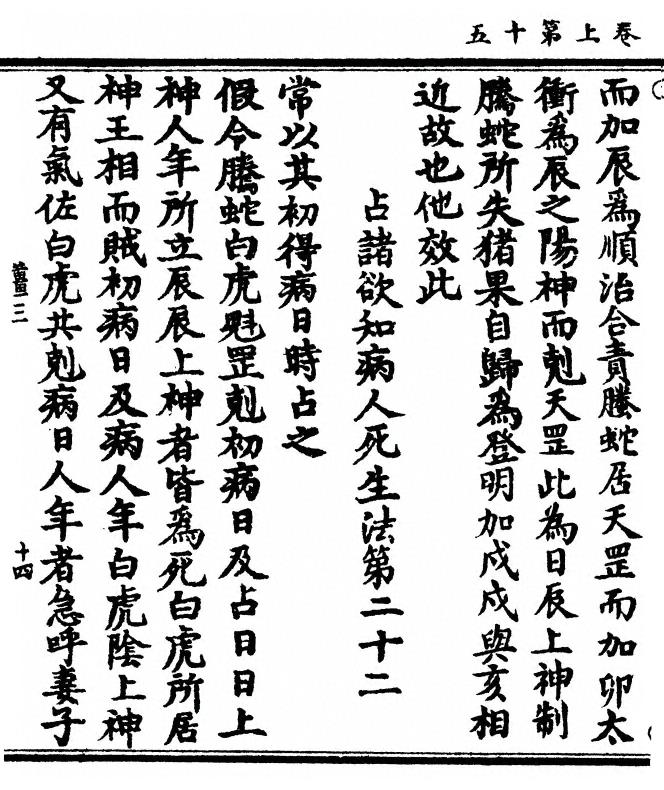 卷上第十五
而加辰爲順治合責騰蛇居天罡而加卯太
衝爲辰之陽神而剋天罡此為日辰上神制
騰蛇所失猪果自歸爲登明加戍戍與亥相
近故也他效此
占諸欲知病人死生法第二十二
常以其初得病日時占之
假令騰蛇白虎魁罡剋初病日及占日日上
神人年所立辰辰上神者皆爲死白虎所居
神王相而賊初病日及病人年白虎陰上神
又有氣佐白虎共剋病日人年者急呼妻子
十四